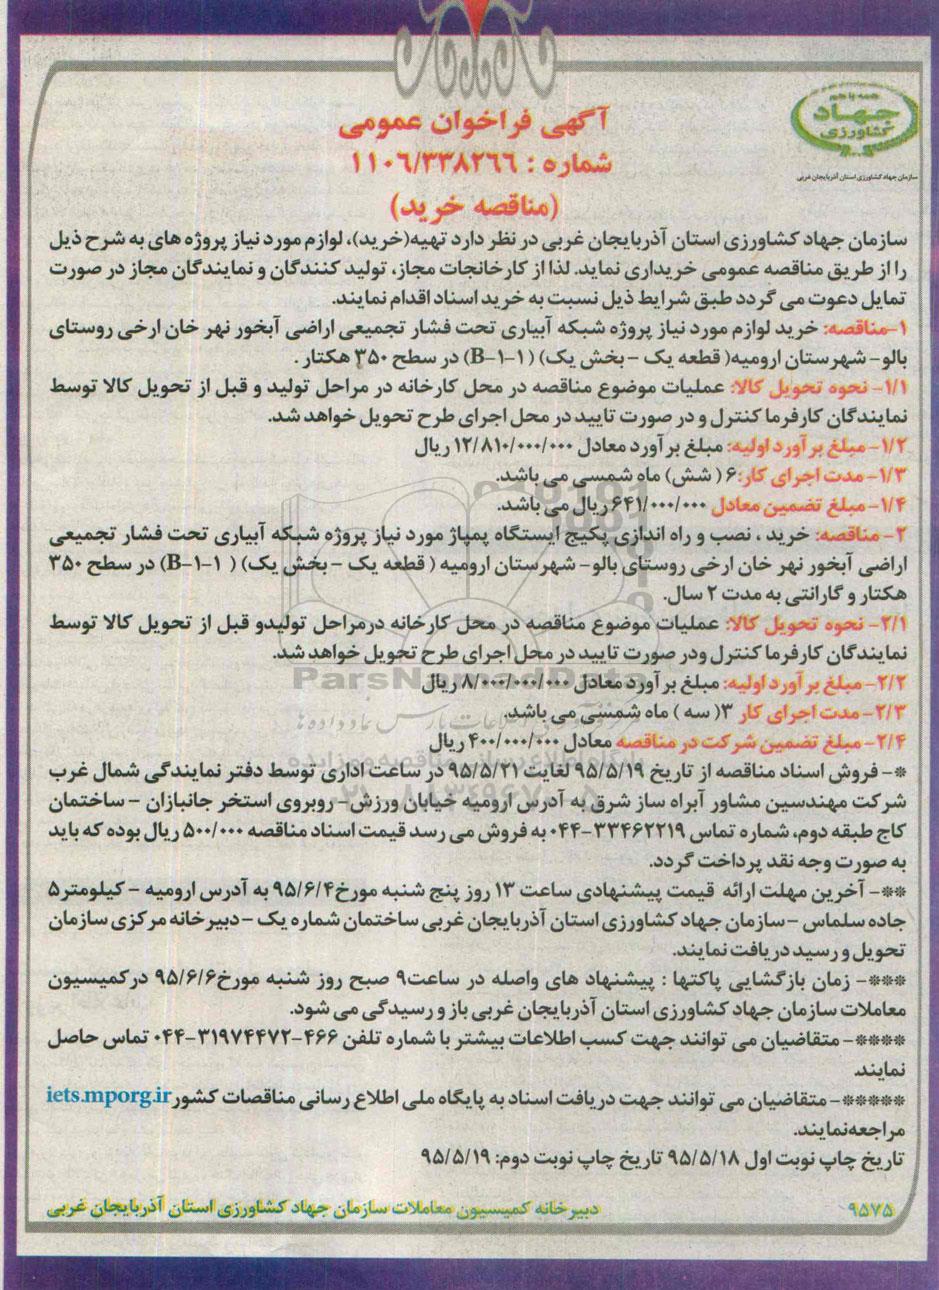 همه با هم
جهاد
کشاورزی
سازمان جهاد کشاورزی استان آذربایجان غربی
آگهی فراخوان عمومی
شماره : ۱۱۰۶/۳۳۸۲۶۶
(مناقصه خرید)
سازمان جهاد کشاورزی استان آذربایجان غربی در نظر دارد تهیه(خرید)، لوازم مورد نیاز پروژه های به شرح ذیل
را از طریق مناقصه عمومی خریداری نماید. لذا از کارخانجات مجاز، تولید کنندگان و نمایندگان مجاز در صورت
تمایل دعوت می گردد طبق شرایط ذیل نسبت به خرید اسناد اقدام نمایند.
۱-مناقصه: خرید لوازم مورد نیاز پروژه شبکه آبیاری تحت فشار تجمیعی اراضی آبخور نهر خان ارخی روستای
بالو- شهرستان ارومیه( قطعه یک -بخش یک) (B-۱-۱) در سطح ۳۵۰ هکتار .
۱/۱- نحوه تحویل کالا: عملیات موضوع مناقصه در محل کارخانه در مراحل تولید و قبل از تحویل کالا توسط
نمایندگان کارفرما کنترل و در صورت تایید در محل اجرای طرح تحویل خواهد شد.
۱/۲- مبلغ برآورد اولیه: مبلغ برآورد معادل ۱۲/۸۱۰/۰۰۰/۰۰۰ ریال
۱/۳- مدت اجرای کار:۶ ( شش) ماه شمسی می باشد.
۱/۴- مبلغ تضمین معادل ۶۴۱/۰۰۰/۰۰۰ریال می باشد.
۲- مناقصه: خرید ، نصب و راه اندازی پکیج ایستگاه پمپاژ مورد نیاز پروژه شبکه آبیاری تحت فشار تجمیعی
اراضی آبخور نهر خان ارخی روستای بالو- شهرستان ارومیه ( قطعه یک -بخش یک) ( B-۱-۱) در سطح ۳۵۰
هکتار و گارانتی به مدت ۲ سال.
۲/۱- نحوه تحویل کالا: عملیات موضوع مناقصه در محل کارخانه درمراحل تولیدو قبل از تحویل کالا توسط
نمایندگان کارفرما کنترل ودر صورت تایید در محل اجرای طرح تحویل خواهد شد.
۲/۲- مبلغ برآورد اولیه: مبلغ برآورد معادل ۸/۰۰۰/۰۰۰/۰۰۰ ریال
۲/۳- مدت اجرای کار ۳( سه ) ماه شمسی می باشد.
۲/۴- مبلغ تضمین شرکت در مناقصه معادل ۴۰۰/۰۰۰/۰۰۰ ریال
*- فروش اسناد مناقصه از تاریخ ۹۵/۵/۱۹ لغایت ۹۵/۵/۲۱ در ساعت اداری توسط دفتر نمایندگی شمال غرب
شرکت مهندسین مشاور آبراه ساز شرق به آدرس ارومیه خیابان ورزش- روبروی استخر جانبازان - ساختمان
کاج طبقه دوم، شماره تماس ۳۳۴۶۲۲۱۹-۰۴۴ به فروش می رسد قیمت اسناد مناقصه ۵۰۰/۰۰۰ ریال بوده که باید
به صورت وجه نقد پرداخت گردد.
**- آخرین مهلت ارائه قیمت پیشنهادی ساعت ۱۳ روز پنج شنبه مورخ۹۵/۶/۴ به آدرس ارومیه - کیلومتر۵
جاده سلماس -سازمان جهاد کشاورزی استان آذربایجان غربی ساختمان شماره یک -دبیرخانه مرکزی سازمان
تحویل و رسید دریافت نمایند.
***- زمان بازگشایی پاکتها : پیشنهاد های واصله در ساعت۹ صبح روز شنبه مورخ۹۵/۶/۶ در کمیسیون
معاملات سازمان جهاد کشاورزی استان آذربایجان غربی باز و رسیدگی می شود.
****- متقاضیان می توانند جهت کسب اطلاعات بیشتر با شماره تلفن ۴۶۶-۳۱۹۷۴۴۷۲-۰۴۴ تماس حاصل
نمایند.
*****- متقاضیان می توانند جهت دریافت اسناد به پایگاه ملی اطلاع رسانی مناقصات کشور iets.mporg.ir
مراجعه نمایند.
تاریخ چاپ نوبت اول ۹۵/۵/۱۸ تاریخ چاپ نوبت دوم: ۹۵/۵/۱۹
۹۵۷۵
دبیرخانه کمیسیون معاملات سازمان جهاد کشاورزی استان آذربایجان غربی
ParsNamadData